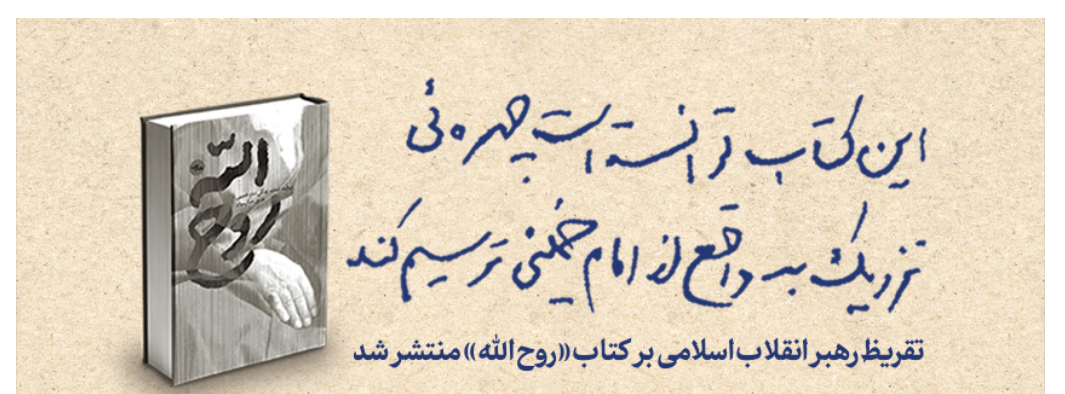 این کتاب توانسته است چهره‌ئی
نزدیک به واقع از امام خمینی ترسیم کند
تقریظ رهبر انقلاب اسلامی بر کتاب «روح الله» منتشر شد
الله
روح